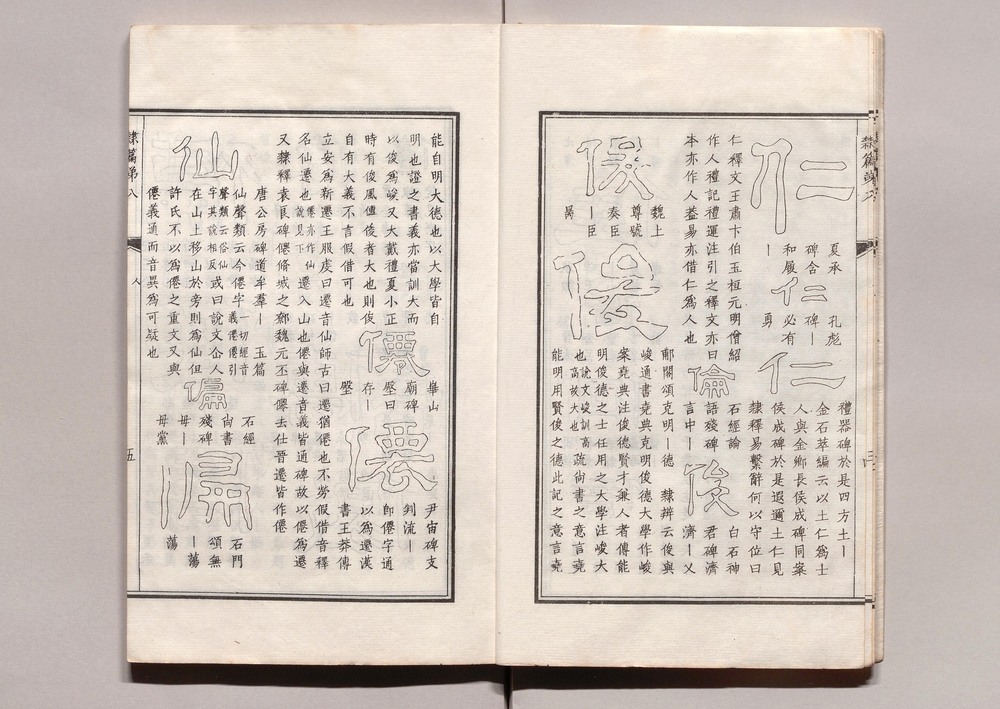 仁
夏承
碑含
和履
｜
仁
孔彪
碑｜
必有
勇
仁
禮器碑於是四方土｜
金石萃編云以土仁爲士
人與金鄉長侯成碑同案
侯成碑於是遐邇土仁見
隸釋易繫辭何以守位曰
仁釋文王肅卞伯玉桓元明僧紹
作人禮記禮運注引之釋文亦曰
本亦作人益易亦借仁爲人也
倫
石經論
語殘碑
言中｜
俊
白石神
君碑濟
濟｜乂
俊
魏上
尊號
奏臣
｜臣
俊
郙閣頌克明｜德
隸辨云俊與
峻通書堯典克明俊德大學作峻
案堯典注俊德賢才兼人者傳能
明俊德之士任用之大學注峻大
也說文峻訓高
高故大也
疏尚書之意言堯
能明用賢俊之德此記之意言堯
能自明大德也以大學皆自
明也證之書義亦當訓大而
以俊爲峻又大戴禮夏小正
時有俊風傳俊者大也則俊
自有大義不言假借可也
僊
華山
廟碑
壂曰
存｜
壂
僊
尹宙碑支
判流｜
卽僊字通
以爲遷漢
書王莽傳
立安爲新遷王服虔曰遷音仙師古曰遷猶僊也不勞假借音釋
名仙遷也
僊亦作仙
說見下
遷入山也僊與遷音義皆通碑故以僊爲遷
又隸釋袁良碑僊脩城之鄣魏元丕碑僊去仕晉遷皆作僊
仙
唐公房碑道牟羣｜
玉篇
仙聲類云今僊字
一切經音
義僊僊引
聲類云俗仙
字其說相反
或曰說文仚人
在山上移山於旁則爲仙但
許氏不以爲僊之重文又與
僊義通而音異爲可疑也
偏
石經
尚書
殘碑
毋｜
毋黨
偏
石門
頌無
｜蕩
蕩
隸篇第八
人
五